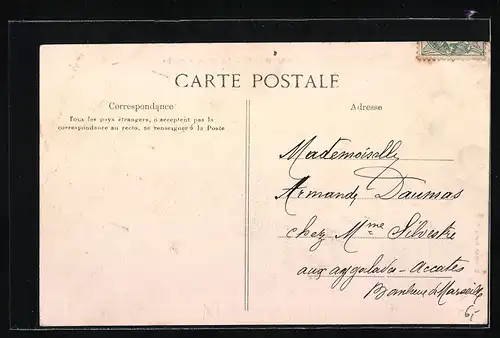 CARTE POSTALE
Correspondance
Tous les pays étrangers, n'acceptent pas la
correspondance au recto, se renseigner à la Poste
Adresse
Mademoiselle
Armande Daumas
chez Mme Silvestre
aux aygalades - Accates
Banlieue de Marseille